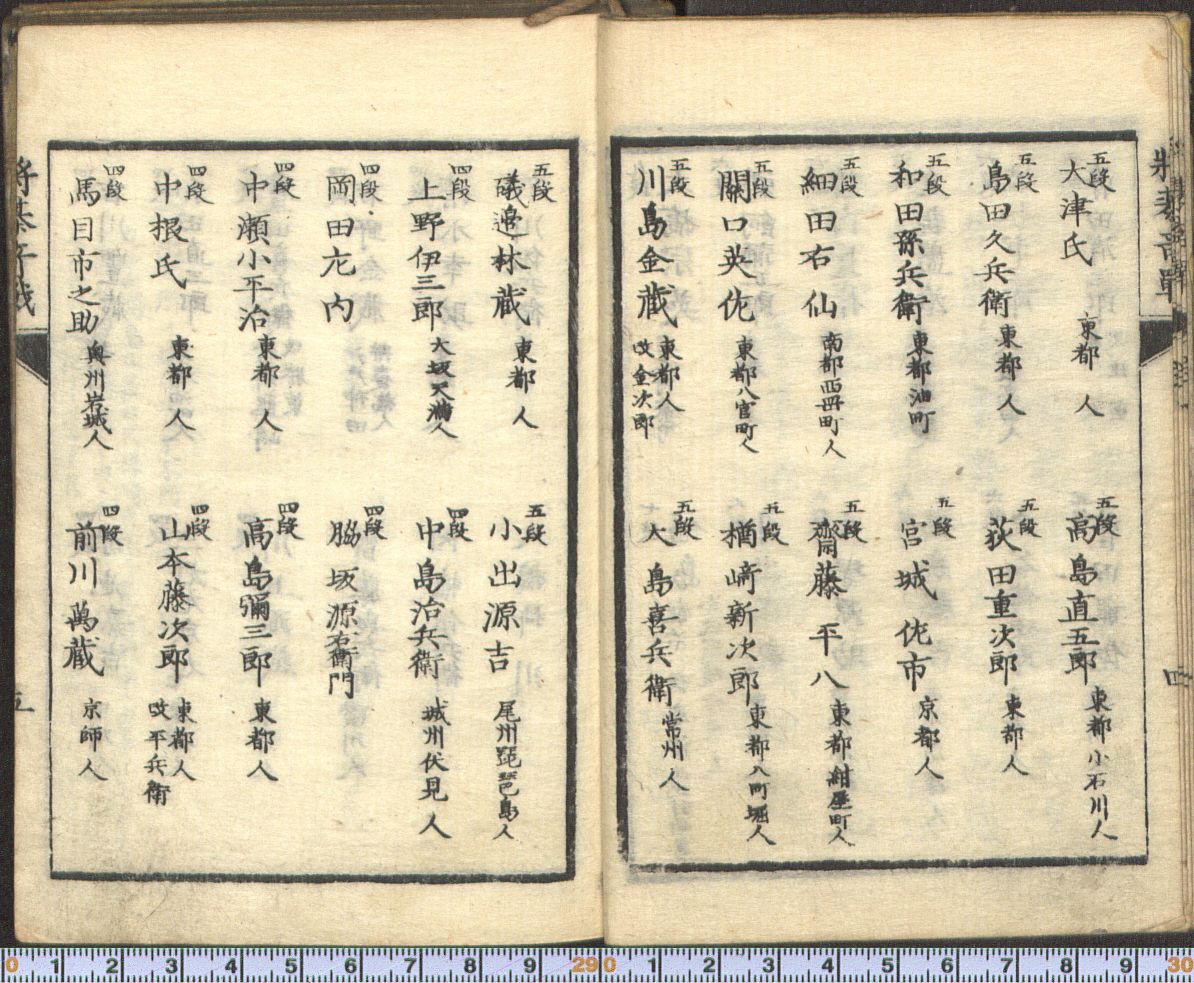 五段 大津氏 東都 人
五段 島田久兵衛 東都 人
五段 和田孫兵衛 東都油町
五段 細田右仙 南都 町人
五段 關口英佐 東都八官町人
五段 川島金藏 東都人 改金次郎
五段 高島直五郎 東都小石川人
五段 荻田重次郎 東都人
五段 宮城佐市 京都人
五段 齋藤平八 東都紺屋町人
五段 楢﨑新次郎 東都八町堀人
五段 大島喜兵衛 常州人
四
五段 礒邉林藏 東都 人
四段 上野伊三郎 大坂天満人
四段 岡田左内
四段 中瀬小平治 東都 人
四段 中根氏 東都 人
四段 馬目市之助 奥州岩城人
五段 小出源吉 尾州琵琶島人
四段 中島治兵衛 城州伏見人
四段 脇坂源右衛門
四段 高島彌三郎 東都人
四段 山本藤次郎 東都人 改平兵衛
四段 前川萬藏 京師人
五